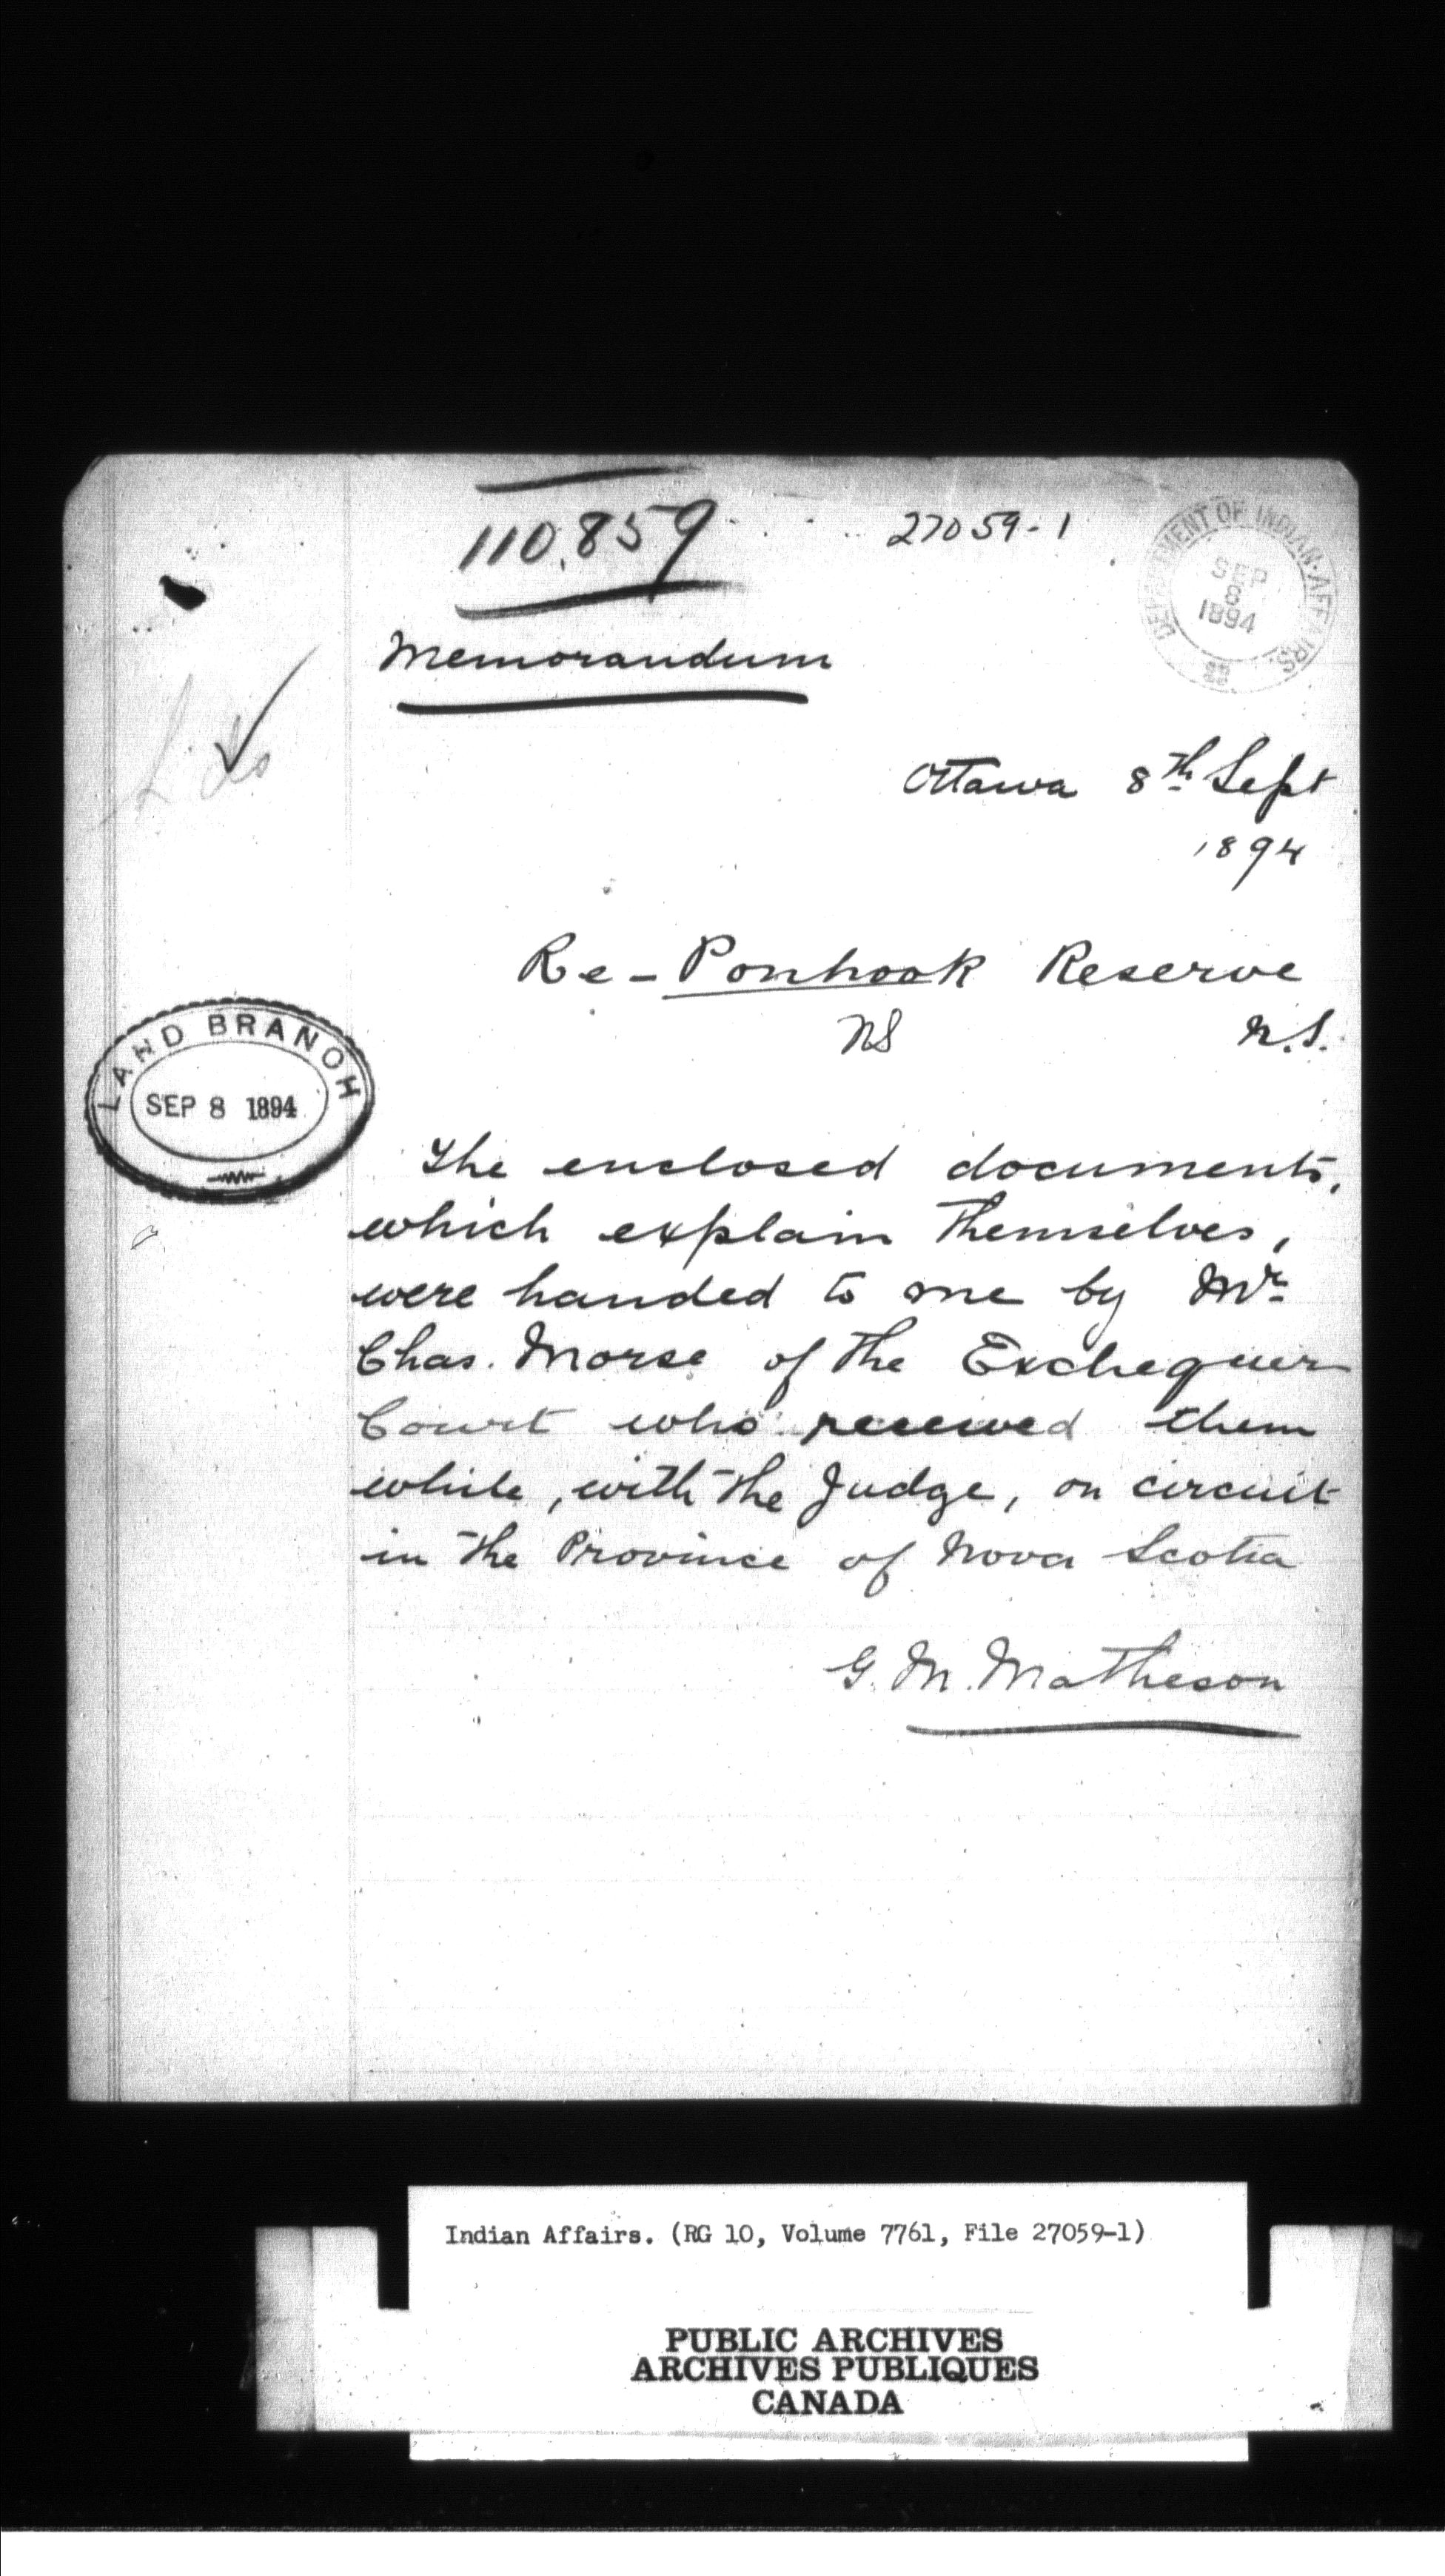 110.859
27059-1
DEPARTMENT OF INDIAN AFFAIRS.
SEP
8
1894
Memorandum
Ottawa 8th Sept
1894
Re - Ponhook Reserve
NS N.S.
LAND BRANCH
SEP 8 1894
The enclosed documents,
which explain themselves,
were handed to me by Mr
Chas. Morse of the Exchequer
Court who received them
while, with the Judge, on circuit
in the Province of Nova Scotia
G. M. Matheson
Indian Affairs. (RG 10, Volume 7761, File 27059-1)
PUBLIC ARCHIVES
ARCHIVES PUBLIQUES
CANADA